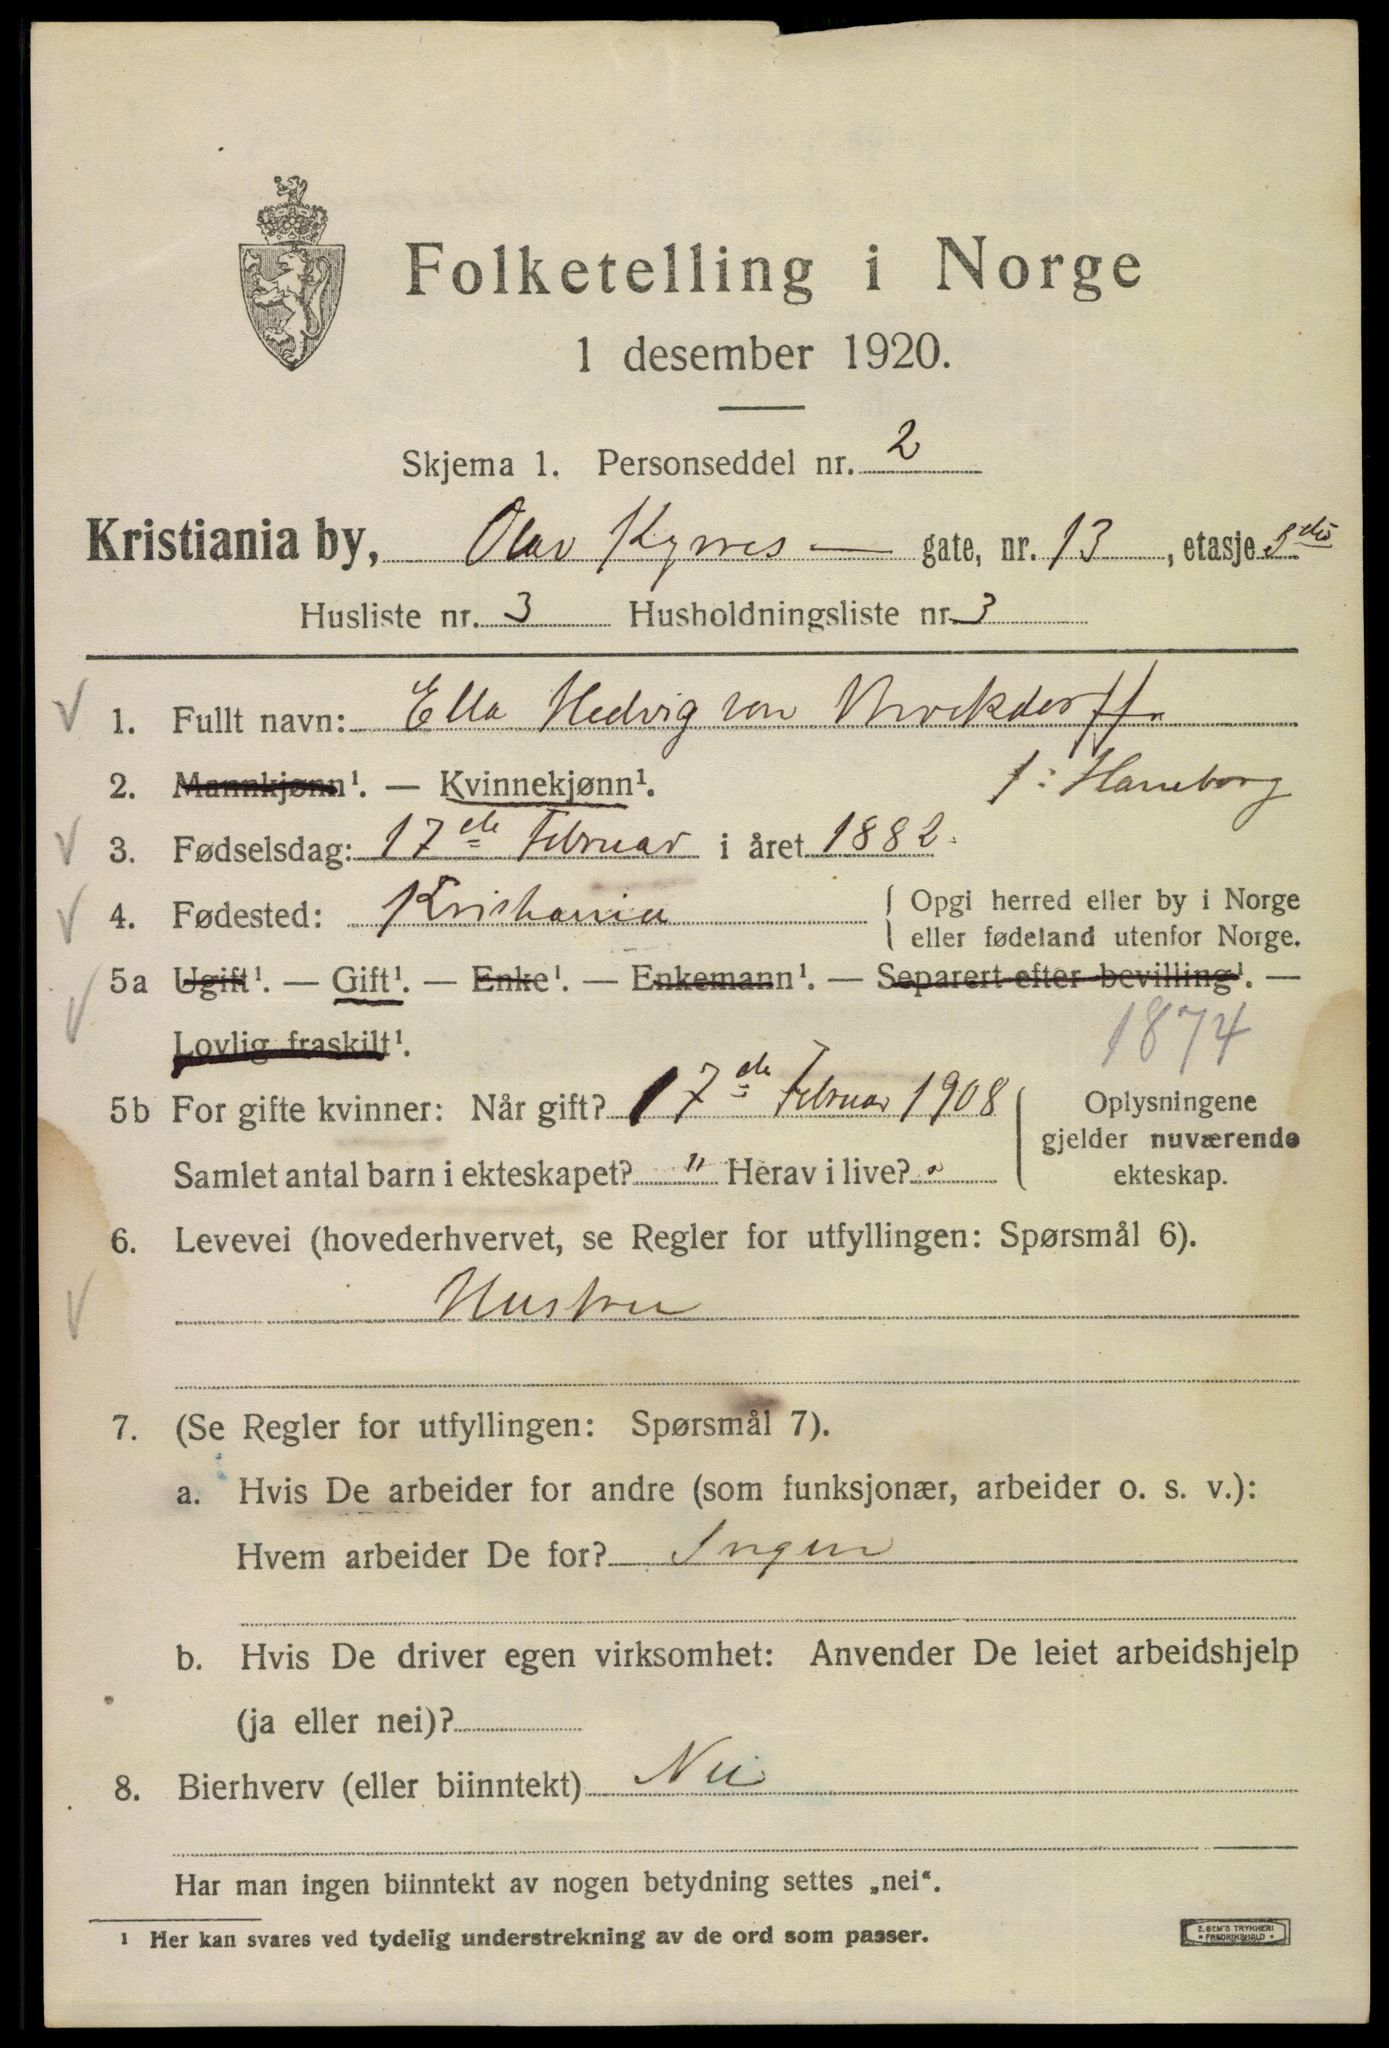 Folketelling i Norge
1 desember 1920.
Skjema 1. Personseddel nr. 2
Kristiania by, Olav Kyrres — gate, nr. 13, etasje
Husliste nr. 3 Husholdningsliste nr. 3
1. Fullt navn: Ella Hedvig von Brockdorff.
2. Mannkjønn¹. — Kvinnekjønn¹. f: Haneborg
3. Fødselsdag: 17de Februar i året 1882.
4. Fødested: Kristiania { Opgi herred eller by i Norge
eller fødeland utenfor Norge.
5a Ugift¹. — Gift¹. — Enke¹. — Enkemann¹. — Separert efter bevilling¹. —
Lovlig fraskilt¹. 1874
5b For gifte kvinner: Når gift? 17de Februar 1908 { Oplysningene
gjelder nuværende
Samlet antal barn i ekteskapet? " Herav i live? "
ekteskap.
6. Levevei (hovederhvervet, se Regler for utfyllingen: Spørsmål 6).
Hustru
7. (Se Regler for utfyllingen: Spørsmål 7).
a. Hvis De arbeider for andre (som funksjonær, arbeider o. s. v.):
Hvem arbeider De for? Ingen
b. Hvis De driver egen virksomhet: Anvender De leiet arbeidshjelp
(ja eller nei)?
8. Bierhverv (eller biinntekt) Nei
Har man ingen biinntekt av nogen betydning settes „nei“.
¹ Her kan svares ved tydelig understrekning av de ord som passer.
E. SEM'S TRYKKERI
* FREDRIKSHALD *